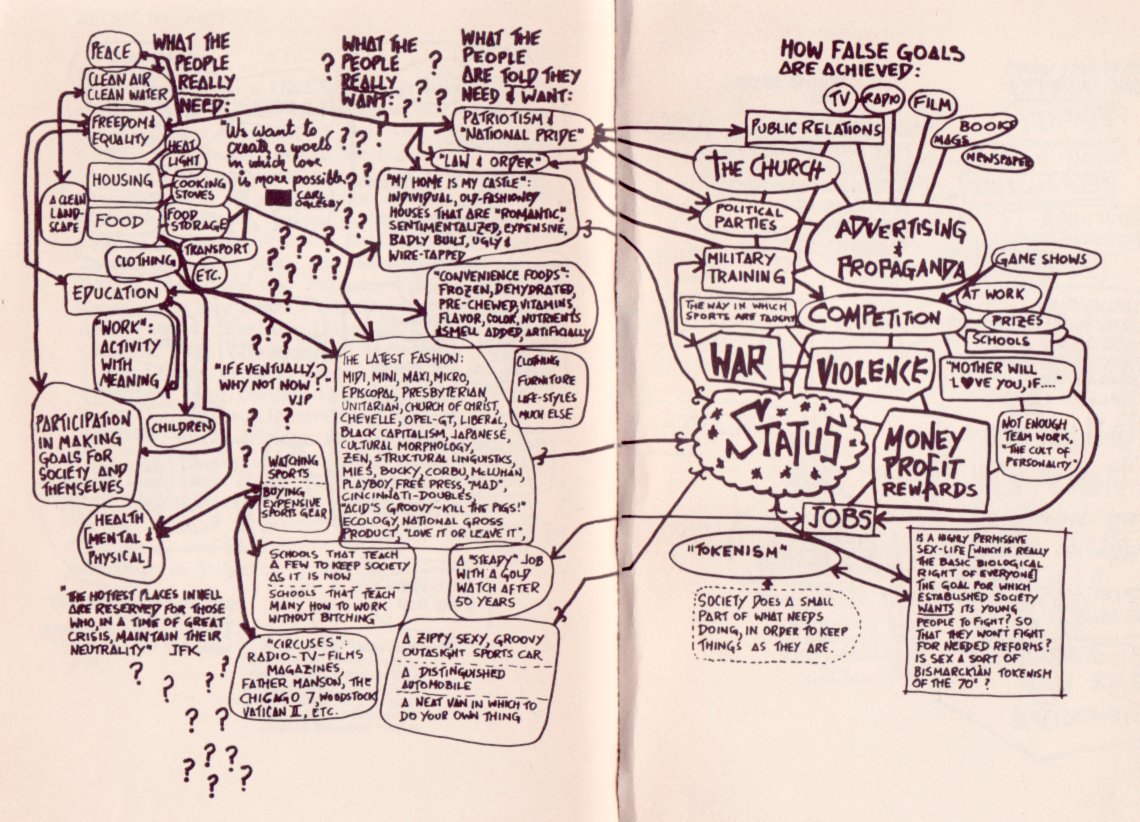 WHAT THE
PEOPLE
REALLY
NEED:
PEACE
CLEAN AIR
CLEAN WATER
FREEDOM &
EQUALITY
HOUSING
HEAT
LIGHT
COOKING
STOVES
FOOD
FOOD
STORAGE
TRANSPORT
ETC.
A CLEAN
LAND-
SCAPE
CLOTHING
EDUCATION
"WORK":
ACTIVITY
WITH
MEANING
CHILDREN
PARTICIPATION
IN MAKING
GOALS FOR
SOCIETY AND
THEMSELVES
HEALTH
[MENTAL &
PHYSICAL]
"THE HOTTEST PLACES IN HELL
ARE RESERVED FOR THOSE
WHO, IN A TIME OF GREAT
CRISIS, MAINTAIN THEIR
NEUTRALITY" JFK
WHAT THE
PEOPLE
REALLY
WANT:
"We want to
create a world
in which love
is more possible"
CARL
OGLESBY
"IF EVENTUALLY,
WHY NOT NOW?"
VJP
WATCHING
SPORTS
BUYING
EXPENSIVE
SPORTS GEAR
WHAT THE
PEOPLE
ARE TOLD THEY
NEED & WANT:
PATRIOTISM &
"NATIONAL PRIDE"
"LAW & ORDER"
"MY HOME IS MY CASTLE":
INDIVIDUAL, OLD-FASHIONEY
HOUSES THAT ARE "ROMANTIC",
SENTIMENTALIZED, EXPENSIVE,
BADLY BUILT, UGLY &
WIRE-TAPPED
"CONVENIENCE FOODS":
FROZEN, DEHYDRATED,
PRE-CHEWED, VITAMINS,
FLAVOR, COLOR, NUTRIENTS
& SMELL ADDED, ARTIFICIALLY
THE LATEST FASHION:
MIDI, MINI, MAXI, MICRO,
EPISCOPAL, PRESBYTERIAN,
UNITARIAN, CHURCH OF CHRIST,
CHEVELLE, OPEL-GT, LIBERAL,
BLACK CAPITALISM, JAPANESE,
CULTURAL MORPHOLOGY,
ZEN, STRUCTURAL LINGUISTICS,
MIES, BUCKY, CORBU, McLUHAN,
PLAYBOY, FREE PRESS, "MAD",
CINCINNATI-DOUBLES,
"ACID'S GROOVY~KILL THE PIGS!"
ECOLOGY, NATIONAL GROSS
PRODUCT, "LOVE IT OR LEAVE IT",
CLOTHING
FURNITURE
LIFE-STYLES
MUCH ELSE
SCHOOLS THAT TEACH
A FEW TO KEEP SOCIETY
AS IT IS NOW
SCHOOLS THAT TEACH
MANY HOW TO WORK
WITHOUT BITCHING
A "STEADY" JOB
WITH A GOLD
WATCH AFTER
50 YEARS
"CIRCUSES":
RADIO-TV-FILMS
MAGAZINES,
FATHER MANSON, THE
CHICAGO 7, WOODSTOCK
VATICAN II, ETC.
A ZIPPY, SEXY, GROOVY
OUTASIGHT SPORTS CAR
A DISTINGUISHED
AUTOMOBILE
A NEAT VAN IN WHICH TO
DO YOUR OWN THING
HOW FALSE GOALS
ARE ACHIEVED:
TV
RADIO
FILM
BOOKS
MAGS
NEWSPAPER
PUBLIC RELATIONS
THE CHURCH
POLITICAL
PARTIES
ADVERTISING
&
PROPAGANDA
MILITARY
TRAINING
GAME SHOWS
AT WORK
PRIZES
SCHOOLS
THE WAY IN WHICH
SPORTS ARE TAUGHT
COMPETITION
WAR
VIOLENCE
"MOTHER WILL
L♥VE YOU, IF...."
STATUS
MONEY
PROFIT
REWARDS
NOT ENOUGH
TEAM WORK,
"THE CULT OF
PERSONALITY"
JOBS
"TOKENISM"
SOCIETY DOES A SMALL
PART OF WHAT NEEDS
DOING, IN ORDER TO KEEP
THINGS AS THEY ARE.
IS A HIGHLY PERMISSIVE
SEX-LIFE [WHICH IS REALLY
THE BASIC BIOLOGICAL
RIGHT OF EVERYONE]
THE GOAL FOR WHICH
ESTABLISHED SOCIETY
WANTS ITS YOUNG
PEOPLE TO FIGHT? SO
THAT THEY WON'T FIGHT
FOR NEEDED REFORMS?
IS SEX A SORT OF
BISMARCKIAN TOKENISM
OF THE 70'S?